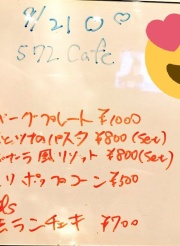 9/21 ○ ♡
572 Cafe
バーグプレート ¥1000
とツナのパスタ ¥800 (set)
ボナーラ風リゾット ¥800 (set)
リ ポップコーン ¥500
ランチェキ ¥700